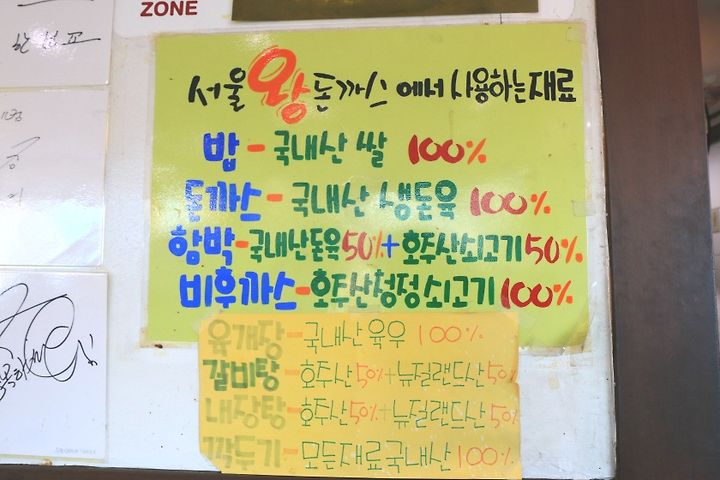 ZONE
서울 왕 돈까스 에서 사용하는 재료
밥 - 국내산 쌀 100%
돈까스 - 국내산 생돈육 100%
함박 - 국내산돈육50% + 호주산쇠고기50%
비후까스 - 호주산청정쇠고기100%
육개장 - 국내산육우 100%
갈비탕 - 호주산50%+뉴질랜드산50%
내장탕 - 호주산50%+뉴질랜드산50%
깍두기 - 모든재료국내산100%